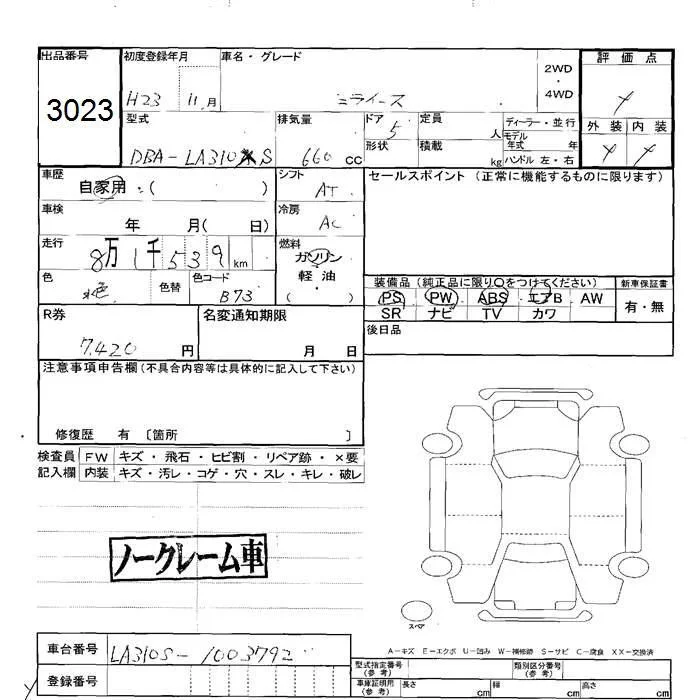 出品番号 初度登録年月 車名・グレード 2WD・4WD 評価点
3023 H23 11月 ミライース
型式 排気量 ドア 定員 ディーラー・並行 外装 内装
DBA-LA310S 660cc 5 人 モデル年式 年
形状 積載 kg ハンドル 左・右
車歴 シフト セールスポイント (正常に機能するものに限ります)
自家用・( ) AT
車検 冷房
年 月( 日) AC
走行 燃料
8万1千539km ガソリン
軽油
( )
色 色替 色コード 装備品 (純正品に限り○をつけてください) 新車保証書
水色 B73 PS PW ABS エアB AW 有・無
R券 名変通知期限 SR ナビ TV カワ
7,420円 月 日 後日品
注意事項申告欄 (不具合内容等は具体的に記入して下さい)
修復歴 有 〔箇所 〕
検査員 FW キズ・飛石・ヒビ割・リペア跡・×要
記入欄 内装 キズ・汚レ・コゲ・穴・スレ・キレ・破レ
ノークレーム車
スペア
A-キズ E-エクボ U-凹み W-補修跡 S-サビ C-腐食 XX-交換済
車台番号 LA310S-1003792
登録番号
型式指定番号 (参考) 類別区分番号 (参考)
車庫証明用 (参考) 長さ cm 幅 cm 高さ cm